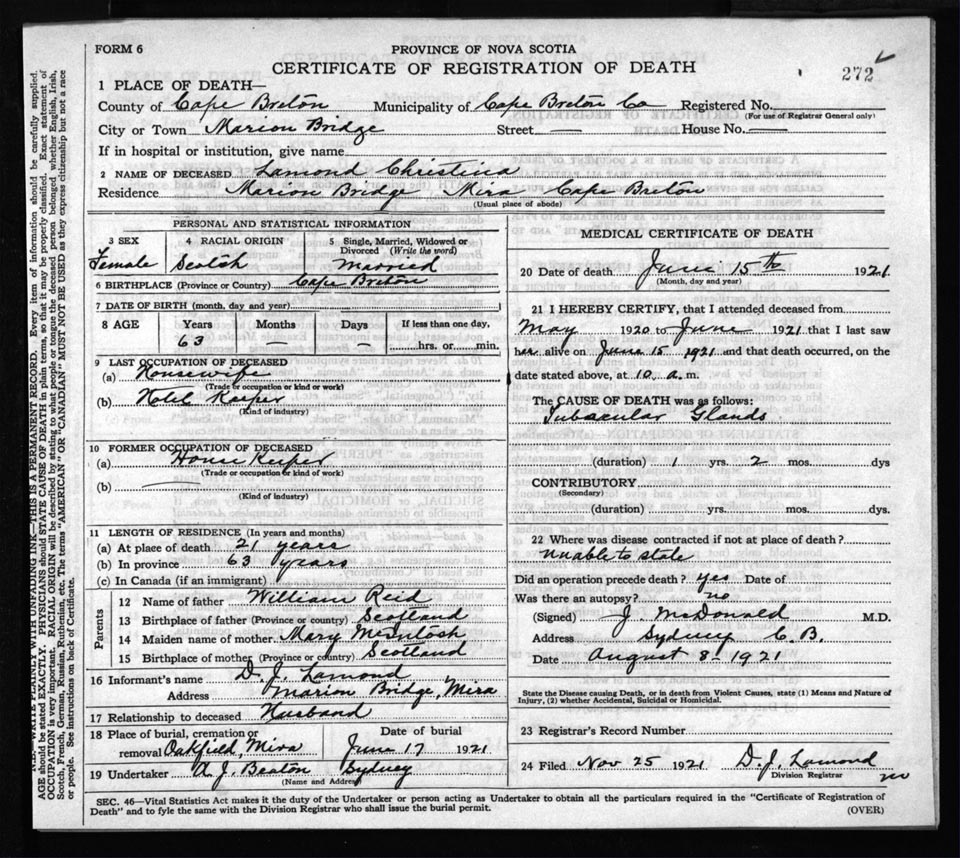 FORM 6
PROVINCE OF NOVA SCOTIA
CERTIFICATE OF REGISTRATION OF DEATH
272
1 PLACE OF DEATH—
County of Cape Breton Municipality of Cape Breton Co Registered No.
(For use of Registrar General only)
City or Town Marion Bridge Street — House No. —
If in hospital or institution, give name
2 NAME OF DECEASED Lamond Christina
Residence Marion Bridge Mira Cape Breton
(Usual place of abode)
PERSONAL AND STATISTICAL INFORMATION
3 SEX 4 RACIAL ORIGIN 5 Single, Married, Widowed or Divorced (Write the word)
Female Scotch Married
6 BIRTHPLACE (Province or Country) Cape Breton
7 DATE OF BIRTH (month, day and year)
8 AGE Years Months Days If less than one day,
63 — — hrs. or min.
9 LAST OCCUPATION OF DECEASED
(a) Housewife
(Trade or occupation or kind or work)
(b) Hotel Keeper
(Kind of industry)
10 FORMER OCCUPATION OF DECEASED
(a) House Keeper
(Trade or occupation or kind of work)
(b) —
(Kind of industry)
11 LENGTH OF RESIDENCE (In years and months)
(a) At place of death 21 years
(b) In province 63 years
(c) In Canada (if an immigrant)
Parents
12 Name of father William Reid
13 Birthplace of father (Province or country) Scotland
14 Maiden name of mother Mary McIntosh
15 Birthplace of mother (Province or country) Scotland
16 Informant's name D. J. Lamond
Address Marion Bridge, Mira
17 Relationship to deceased Husband
18 Place of burial, cremation or removal Oakfield, Mira
Date of burial
June 17 1921
19 Undertaker A. J. Beaton Sydney
(Name and Address)
MEDICAL CERTIFICATE OF DEATH
20 Date of death June 15th 1921
(Month, day and year)
21 I HEREBY CERTIFY, that I attended deceased from
May 1920 to June 1921 that I last saw
her alive on June 15 1921 and that death occurred, on the
date stated above, at 10 a. m.
The CAUSE OF DEATH was as follows:
Tubacular Glands
(duration) 1 yrs. 2 mos. dys
CONTRIBUTORY
(Secondary)
(duration) yrs. mos. dys.
22 Where was disease contracted if not at place of death?
Unable to state
Did an operation precede death? yes Date of
Was there an autopsy? no
(Signed) J. McDonald M.D.
Address Sydney C. B.
Date August 8 - 1921
State the Disease causing Death, or in death from Violent Causes, state (1) Means and Nature of
Injury, (2) whether Accidental, Suicidal or Homicidal.
23 Registrar's Record Number
24 Filed Nov 25 1921 D. J. Lamond
Division Registrar
SEC. 46—Vital Statistics Act makes it the duty of the Undertaker or person acting as Undertaker to obtain all the particulars required in the "Certificate of Registration of
Death" and to fyle the same with the Division Registrar who shall issue the burial permit.
(OVER)
WRITE PLAINLY WITH UNFADING INK—THIS IS A PERMANENT RECORD. Every item of information should be carefully supplied.
AGE should be stated EXACTLY. PHYSICIANS should STATE CAUSE OF DEATH in plain terms, so that it may be properly classified. Exact statement of
OCCUPATION is very important. RACIAL ORIGIN will be described by stating to what people or tongue the deceased person belonged whether English, Irish,
Scotch, French, German, Russian, Ruthenian, etc. The terms "AMERICAN" OR "CANADIAN" MUST NOT BE USED as they express citizenship but not a race
or people. See instructions on back of Certificate.